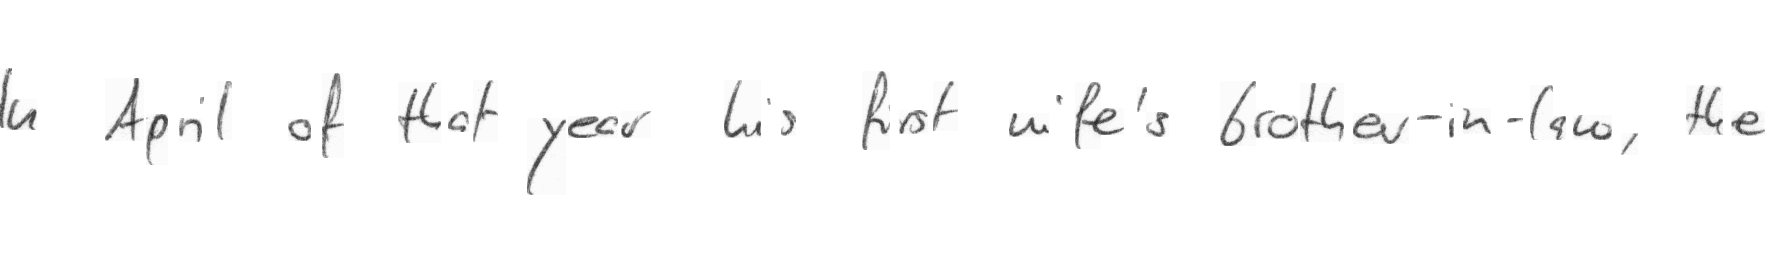 In April of that year his first wife's brother-in-law, the